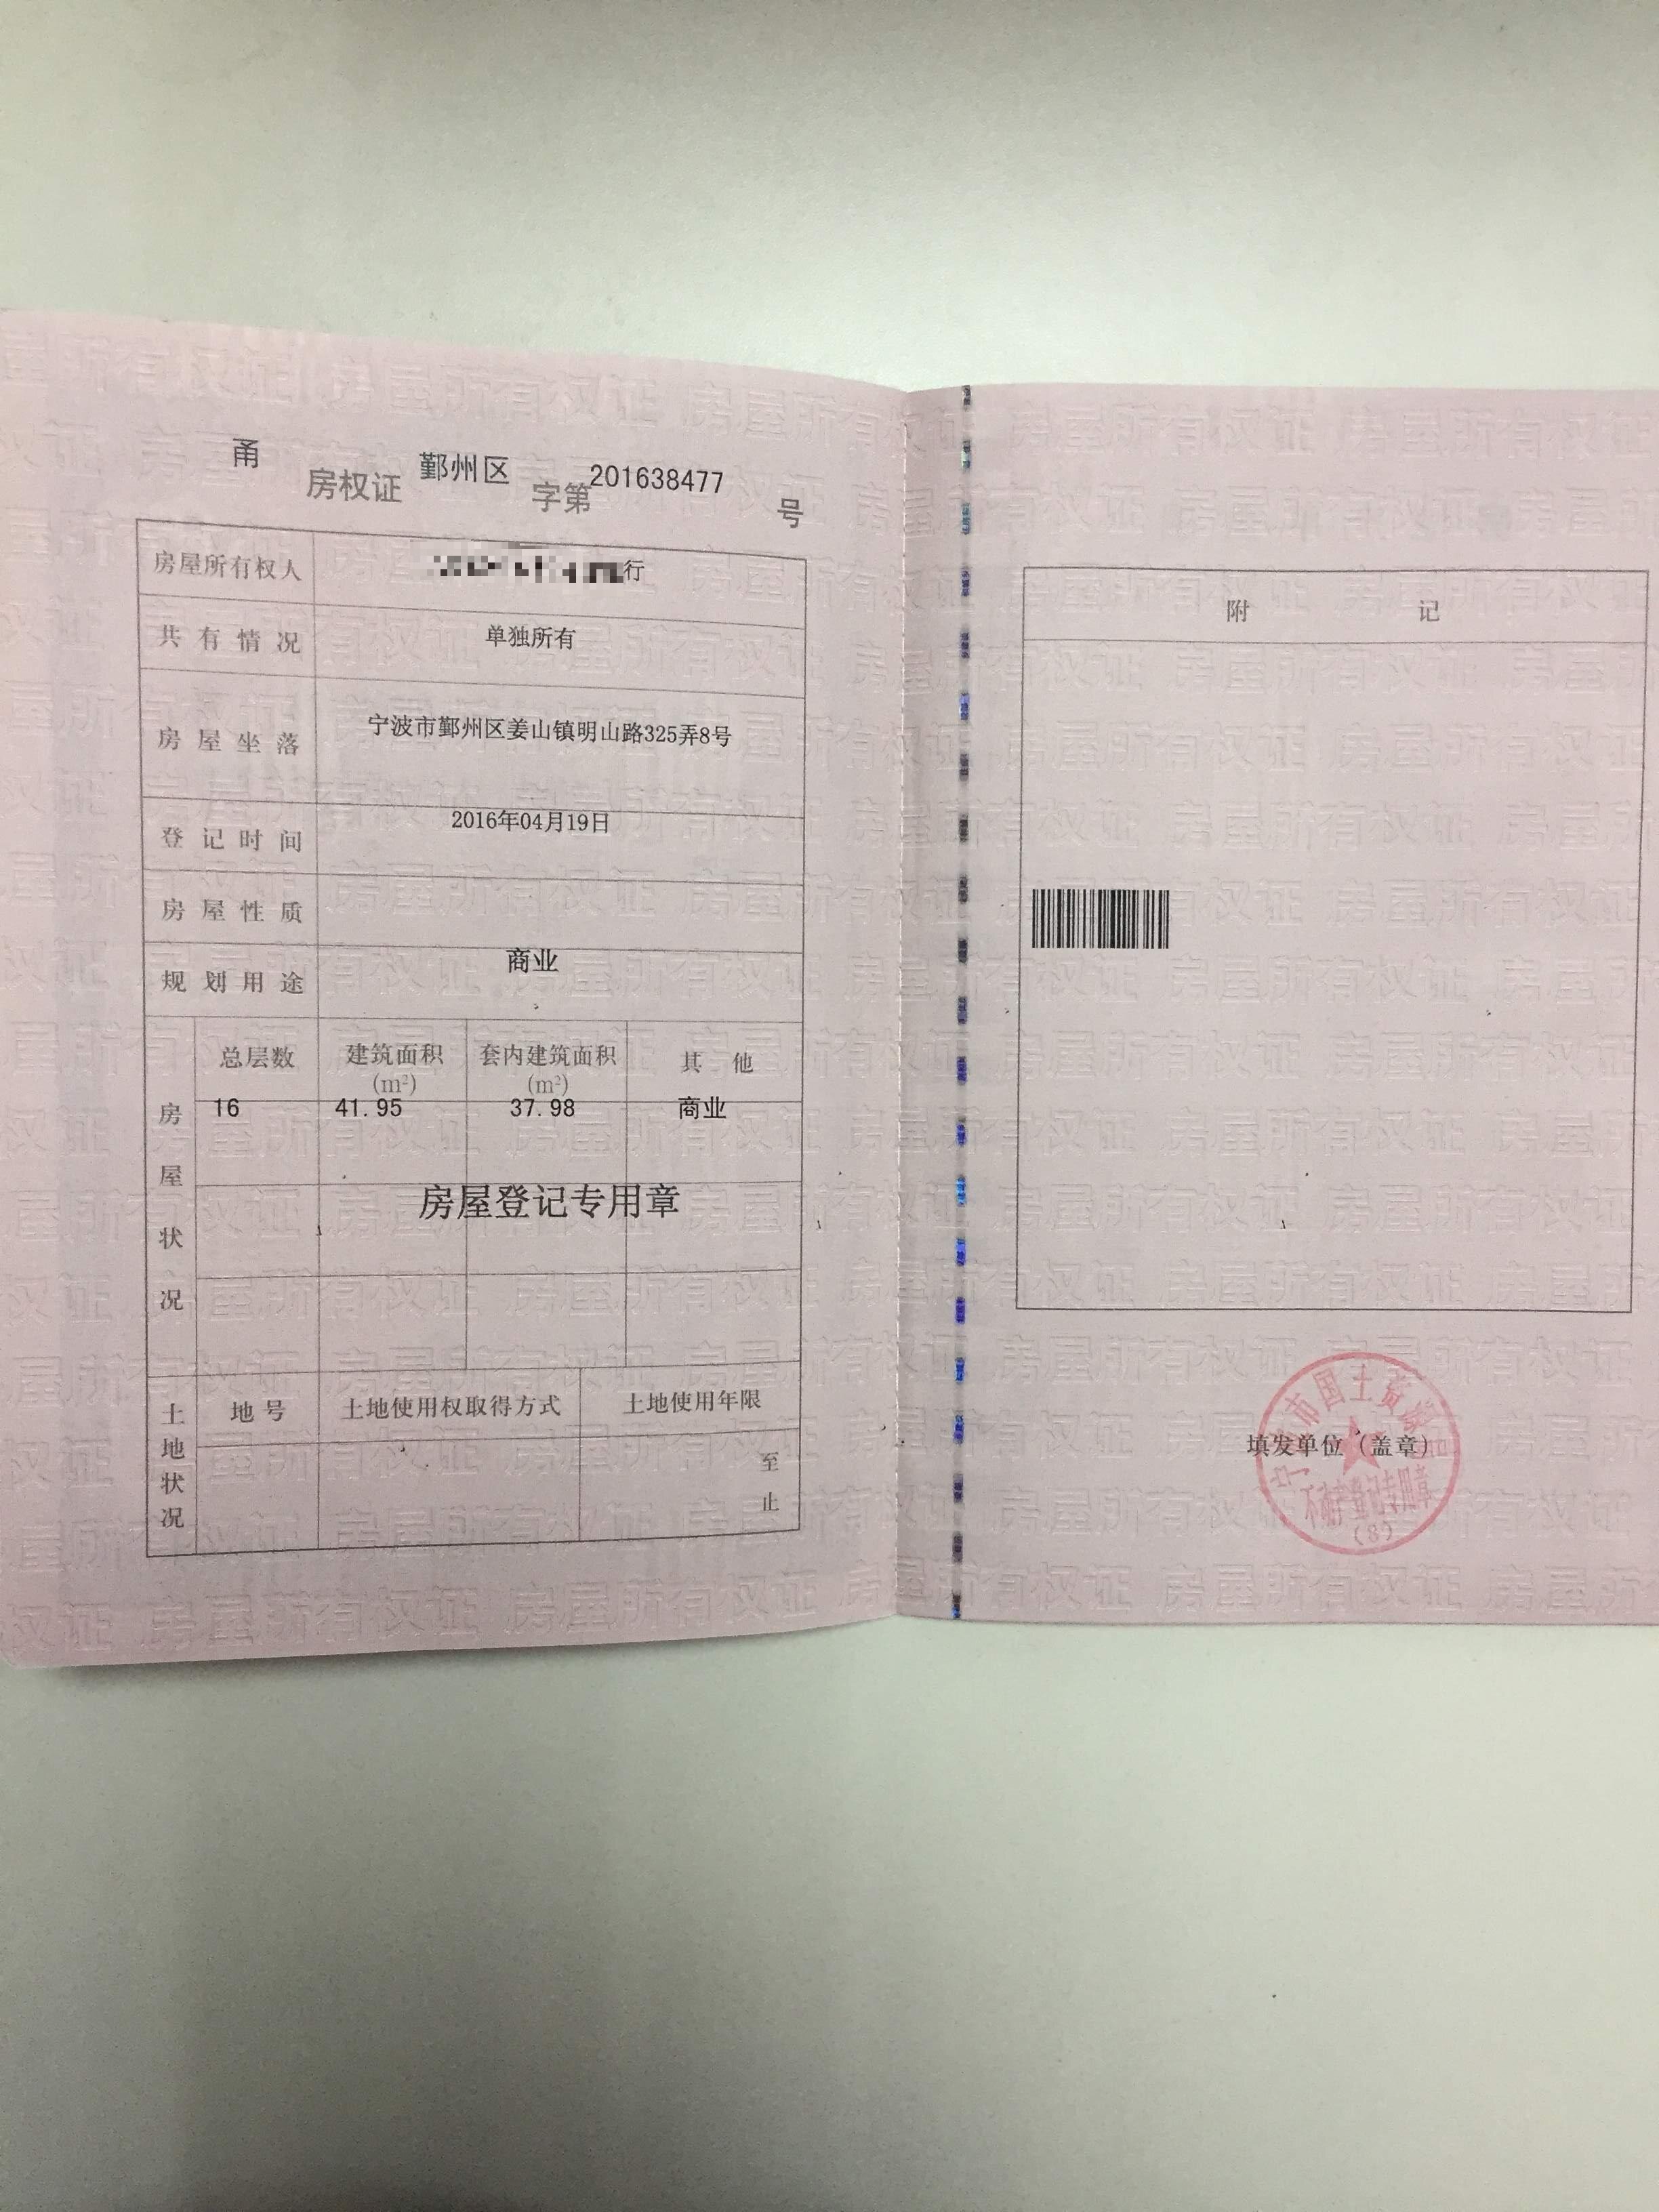 甬 房权证 鄞州区 字第 201638477 号
房屋所有权人 行
共有情况 单独所有
房屋坐落 宁波市鄞州区姜山镇明山路325弄8号
登记时间 2016年04月19日
房屋性质
规划用途 商业
房屋状况
总层数 建筑面积(m²) 套内建筑面积(m²) 其他
16 41.95 37.98 商业
房屋登记专用章
土地状况
地号 土地使用权取得方式 土地使用年限
至
止
附记
填发单位（盖章）
市国土资源
不动产登记专用章
(8)